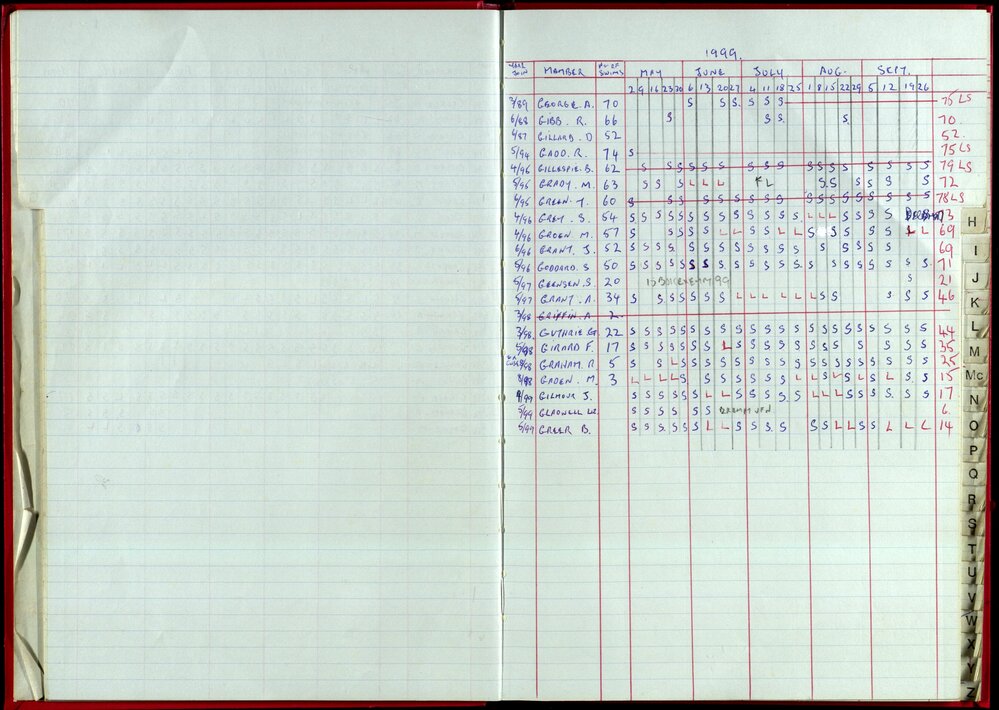 1999.
YEAR JOIN MEMBER No OF SWIMS MAY JUNE JULY AUG. SEPT.
2 9 16 23 30 6 13 20 27 4 11 18 25 1 8 15 22 29 5 12 19 26
7/89 GEORGE. A. 70 S S S. S S S 75 LS
6/88 GIBB. R. 66 S S S S 70.
4/87 GILLARD. D 52 52.
5/94 GADD. R. 74 S 75 LS
4/96 GILLESPIE. B. 62 S S S S S S S S S S S S S S S S S 79 LS
5/96 GRADY. M. 63 S S S L L L L S S S S S 72
GREEN. T. 60 S S S S S S S S S S S S S S S S S S 78 LS
4/96 GREY. S. 54 S S S S S S S S S S S S S L L L S S S S 73
4/96 GROEN. M. 57 S S S S S L L S S L L S S S S S S L L 69
6/96 GRANT. J. 52 S S S S S S S S S S S S S S S S S S 69
5/96 GODDARD. S 50 S S S S S S S S S S S S S S S S S S S S S S 71
5/97 S. 20 S 21
5/97 GRANT. A. 34 S S S S S S S L L L L L L S S S S S 46
7/98 GRIFFIN. A 2
3/98 GUTHRIE. G 22 S S S S S S S S S S S S S S S S S S S S S S 44
GIRARD F. 17 S S S S S S S L S S S S S S S S S S S 35
GRAHAM. R. 5 S S L S S S S S S S S S S S S S S S S S S 25
8/98 GADEN. M. 3 L L L L S S S S S S S S L L S L S L S L S S 15
4/99 GILMOUR J. S S S S S S L L S S S S S L L L S S S S S S 17
5/99 GLADWELL S S S S S S 6
5/99 GREER B. S S S S S S L L S S S S S S L L S S L L L L 14
H
I
J
K
L
M
Mc
N
O
P
Q
R
S
T
U
V
W
X
Y
Z